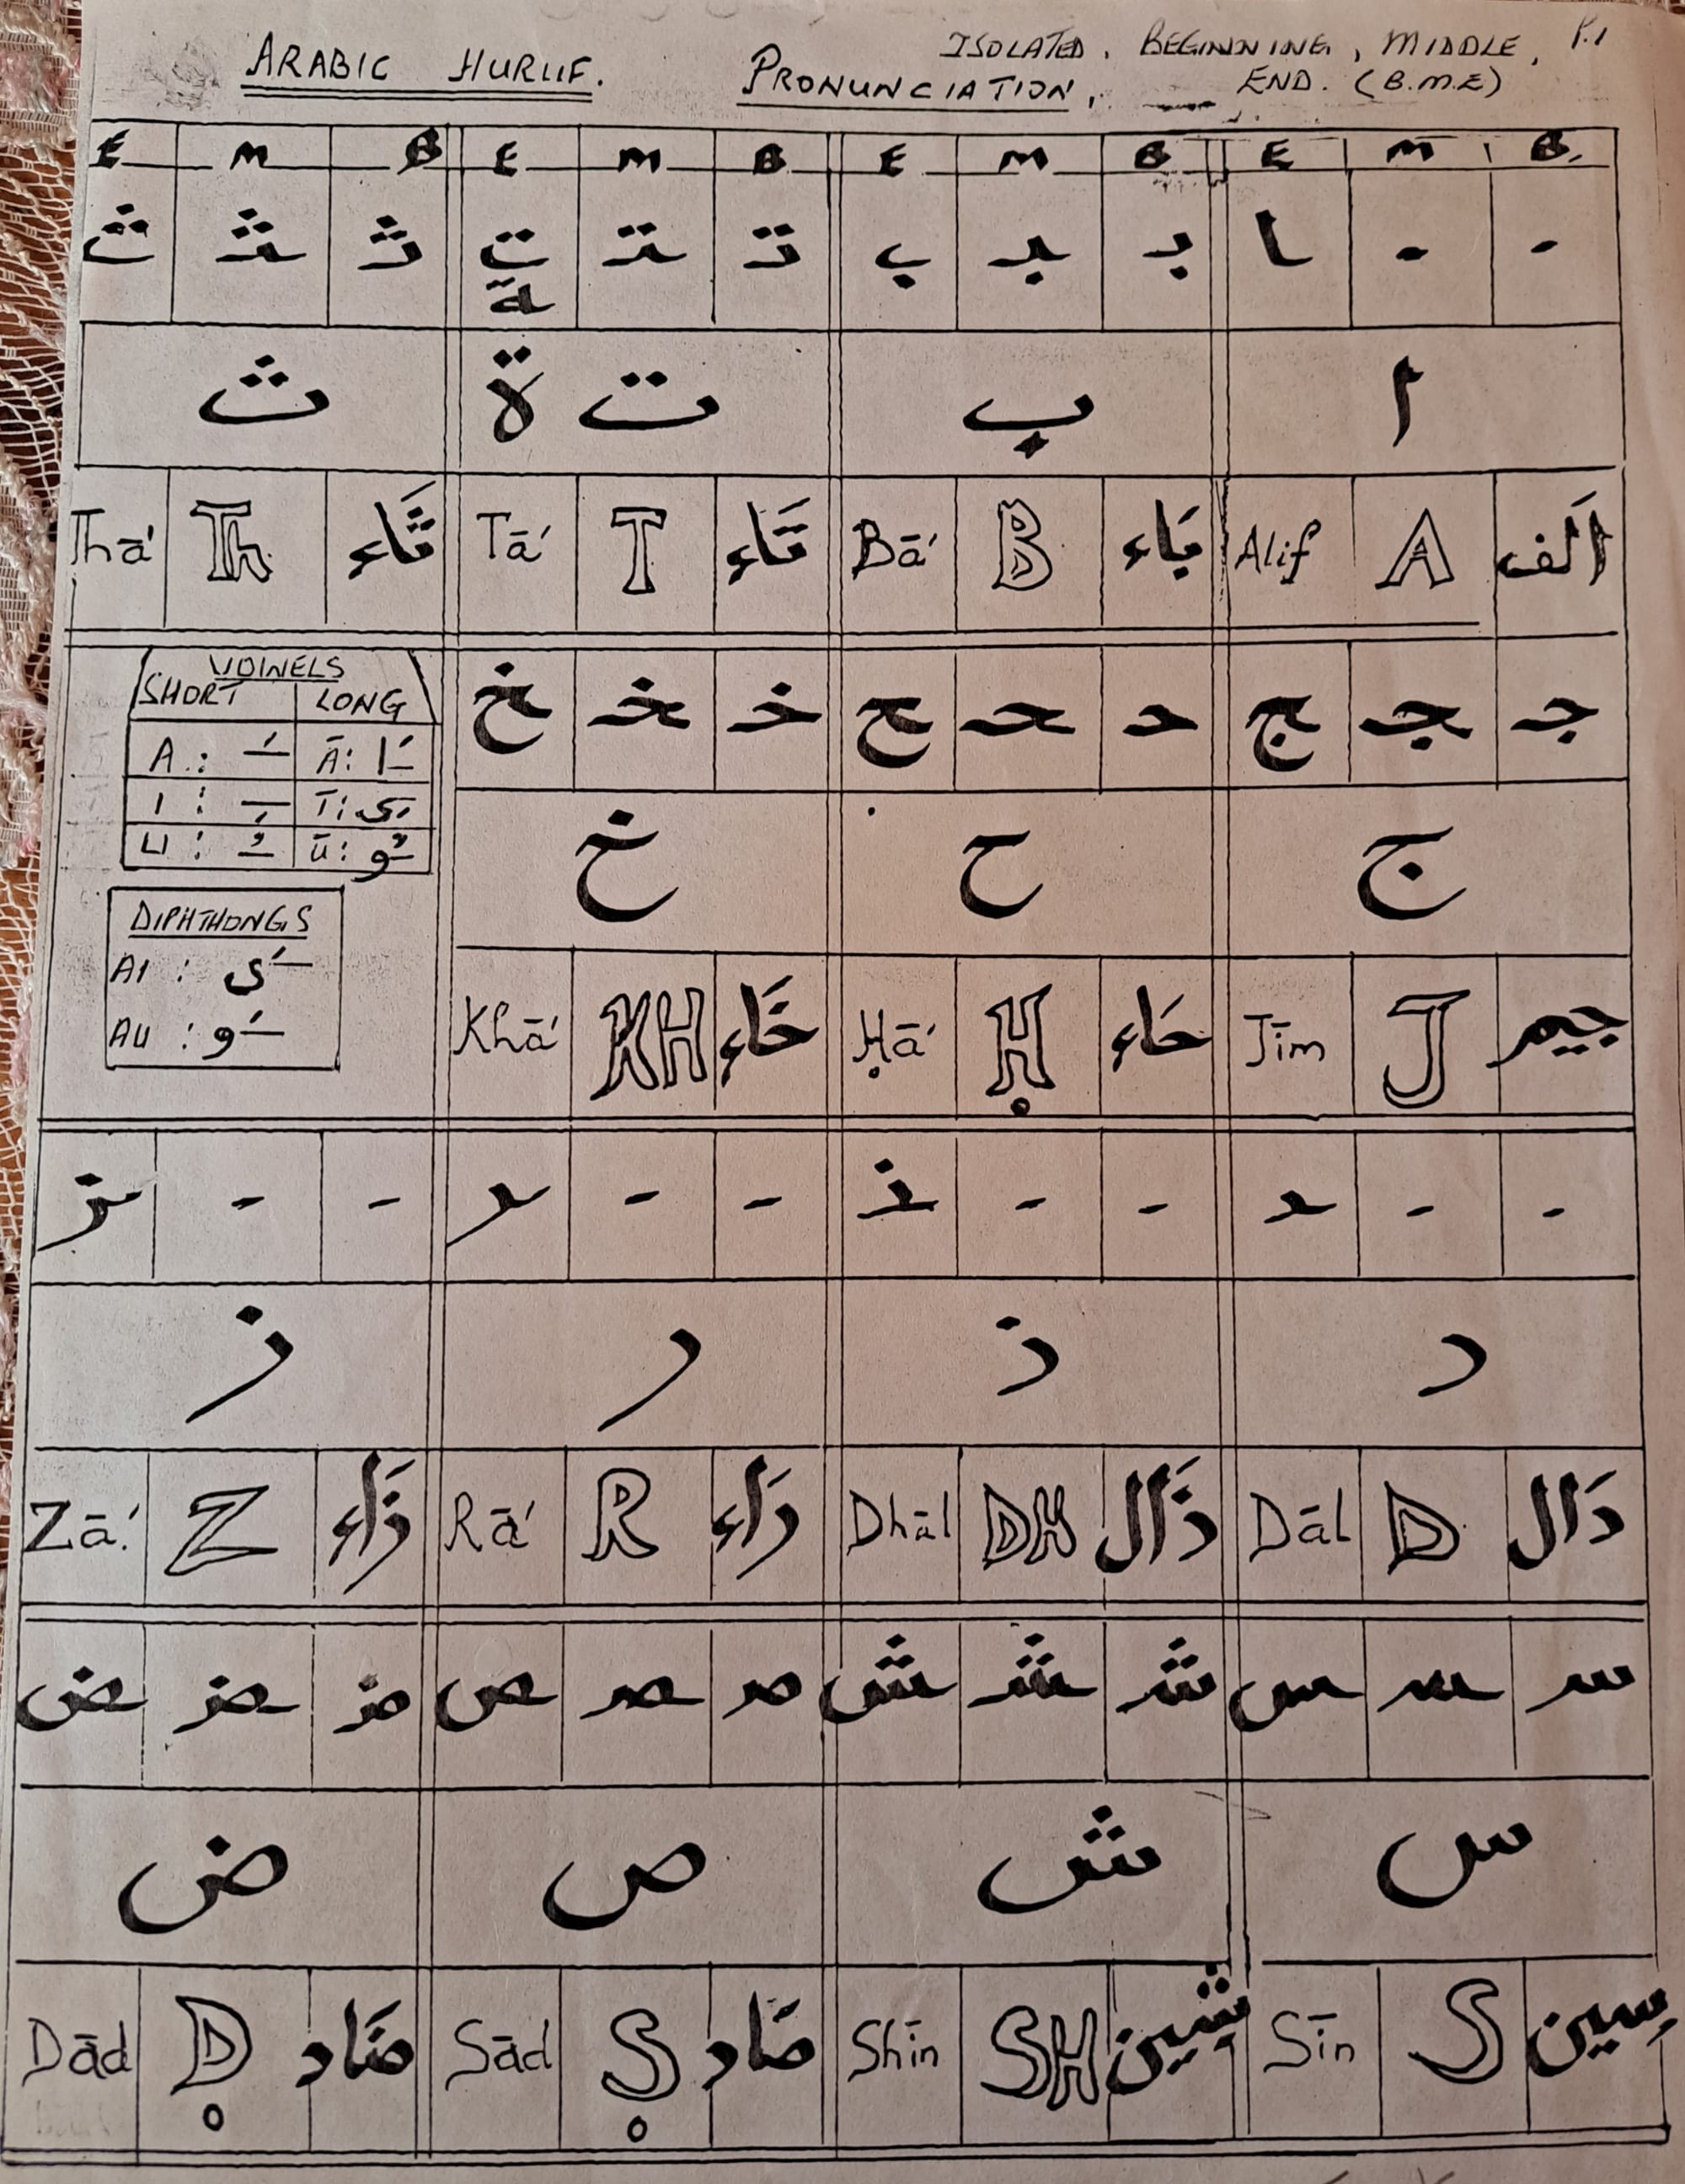 ARABIC HURUF. PRONUNCIATION, ISOLATED, BEGINNING, MIDDLE, END. (B.M.E) P.1
E M B E M B E M B E M B.
ث ـثـ ثـ ت ـتـ تـ ب ـبـ بـ ـا - -
ـة
ث ة ت ب ا
Thā' Th ثَاء Tā' T تَاء Bā' B بَاء Alif A اَلف
VOWELS
SHORT LONG
A : ـَ Ā: ـَا
I : ـِ Ī: ـِى
U : ـُ Ū: ـُو
DIPHTHONGS
AI : ـَى
AU : ـَو
ـخ ـخـ خـ ـح ـحـ حـ ـج ـجـ جـ
خ ح ج
Khā' KH خَاء Ḥā' Ḥ حَاء Jīm J جيم
ـز - - ـر - - ـذ - - ـد - -
ز ر ذ د
Zā' Z زَاء Rā' R رَاء Dhāl DH ذَال Dāl D دَال
ـض ـضـ ضـ ـص ـصـ صـ ـش ـشـ شـ ـس ـسـ سـ
ض ص ش س
Dād Ḍ ضَاد Sād Ṣ صَاد Shīn SH شين Sīn S سِين